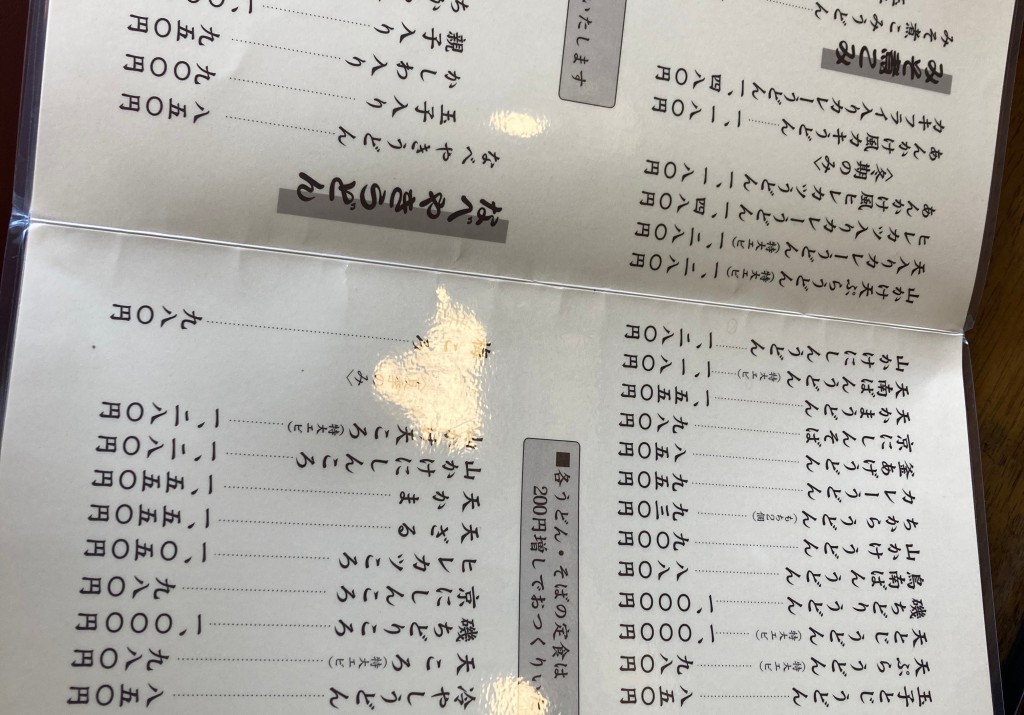 玉子とじうどん 八五〇円
天ぷらうどん(特大エビ) 九八〇円
天とじうどん(特大エビ) 一、〇〇〇円
磯ちどりうどん 一、〇〇〇円
鳥南ばんうどん 八八〇円
山かけうどん 九〇〇円
ちからうどん(もち2個) 九三〇円
カレーうどん 九五〇円
釜あげうどん 八五〇円
京にしんそば 九八〇円
天かまうどん 一、五五〇円
天南ばんうどん(特大エビ) 一、一八〇円
山かけにしんうどん 一、二八〇円
山かけ天ぷらうどん(特大エビ) 一、二八〇円
天入りカレーうどん(特大エビ) 一、二八〇円
ヒレカツ入りカレーうどん 一、四八〇円
あんかけ風ヒレカツうどん 一、一八〇円
〈冬期のみ〉
あんかけ風カキうどん 一、一八〇円
カキフライ入りカレーうどん 一、四八〇円
みそ煮こみ
みそ煮こみうどん
■各うどん・そばの定食は
200円増しでおつくりい
いたします
冷やしうどん 八五〇円
天ころ(特大エビ) 九八〇円
磯ちどりころ 一、〇〇〇円
京にしんころ 九八〇円
ヒレカツころ 一、〇五〇円
天ざる 一、五五〇円
天かま 一、五五〇円
山かけにしんころ 一、二八〇円
天ころ(特大エビ) 一、二八〇円
み〉
九八〇円
なべやきうどん
なべやきうどん 八五〇円
玉子入り 九〇〇円
かしわ入り 九五〇円
親子入り